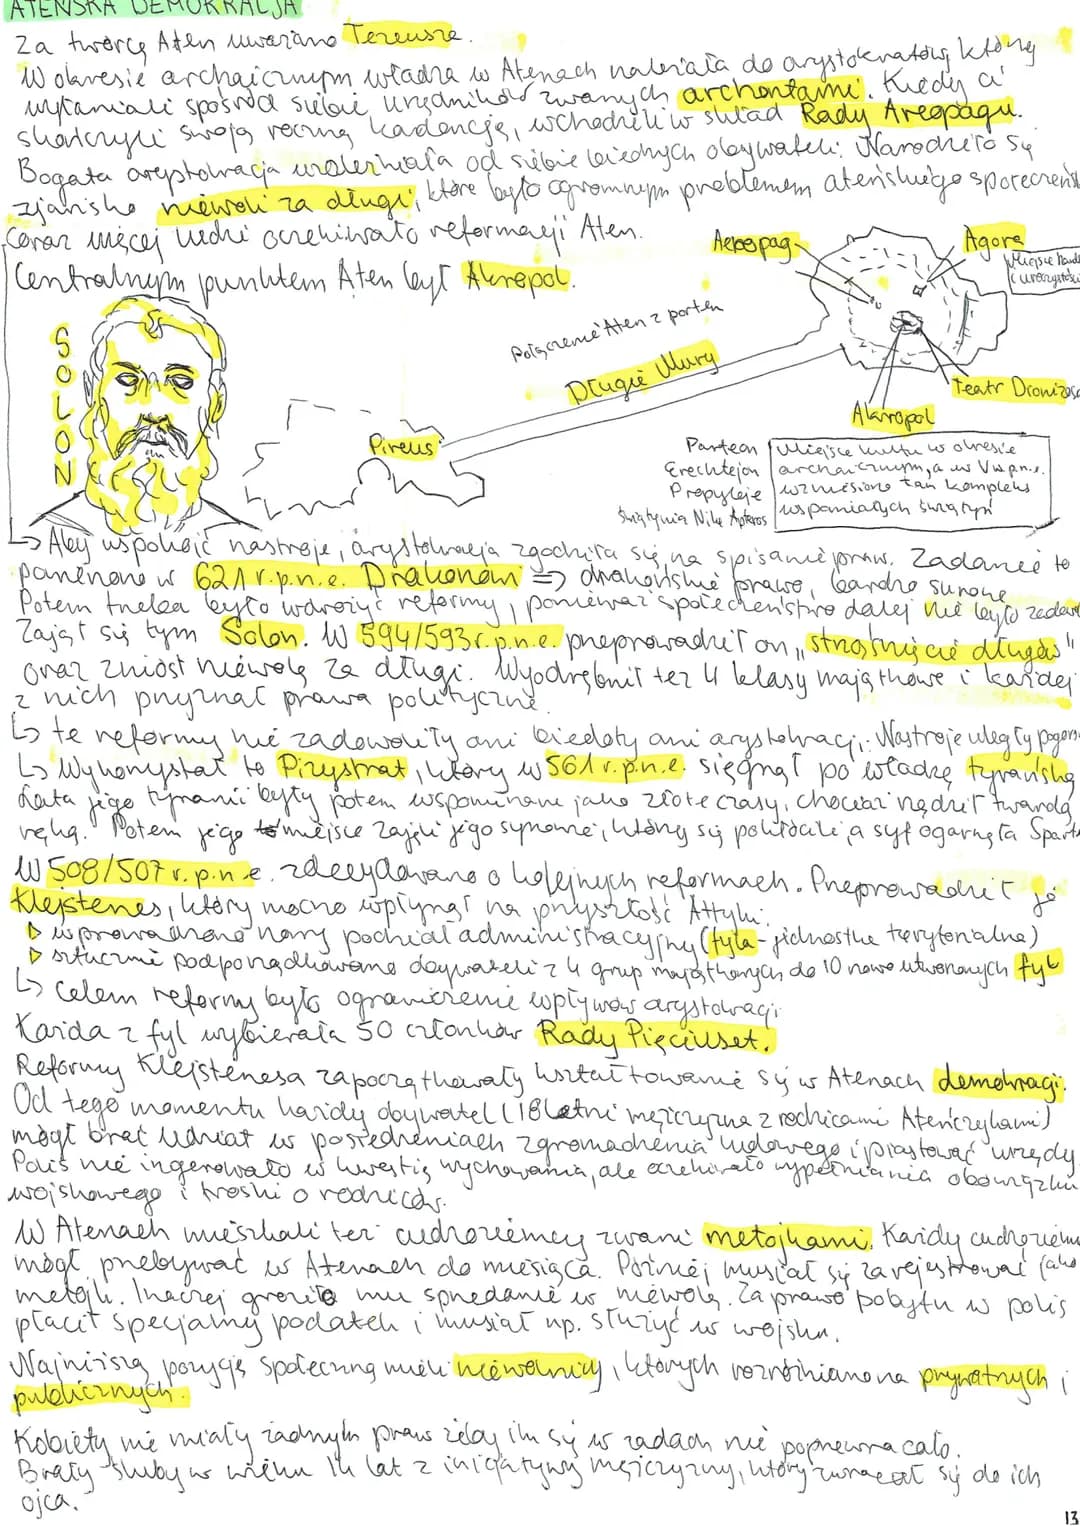 ATEŃSKA DEMOKRACJA
Za twórcę Aten uważano Tezeusza.
W okresie archaicznym władza w Atenach należała do arystokratów, którzy
wyłaniali spośród siebie urzędników zwanych archontami. Kiedy ci
skończyli swoją roczną kadencję, wchodzili w skład Rady Areopagu.
Bogata arystokracja uzależniała od siebie biednych obywateli. Narodziło się
zjawisko niewoli za długi, które było ogromnym problemem ateńskiego społeczeńst
Coraz więcej ludzi oczekiwało reformacji Aten.
Centralnym punktem Aten był Akropol.
Aeropag
Agora
Miejsce hand
i uroczystości
SOLON
Połączenie Aten z portem
Długie Mury
Pireus
Teatr Dionizosa
Akropol
Partenon
Erechtejon
Propyleje
Świątynia Nike Apteros
Miejsce kultu w okresie
archaicznym, a w V w p.n.e.
wzniesiono tam kompleks
wspaniałych świątyń
↳ Aby uspokoić nastroje, arystokracja zgodziła się na spisanie praw. Zadanie to
powierzono w 621 r.p.n.e. Drakonowi => drakońskie prawo, bardzo surowe
Potem trzeba było wdrożyć reformy, ponieważ społeczeństwo dalej nie było zadow
Zajął się tym Solon. W 594/593 r.p.n.e. przeprowadził on „strząśnięcie długów"
oraz zniósł niewolę za długi. Wyodrębnił też 4 klasy majątkowe i każdej
z nich przyznał prawa polityczne.
↳ te reformy nie zadowoliły ani biedoty ani arystokracji. Nastroje uległy pogors
↳ Wykorzystał to Pizystrat, który w 561 r.p.n.e. sięgnął po władzę tyrańską
Lata jego tyranii były potem wspominane jako złote czasy, chociaż rządził twardą
ręką. Potem jego miejsce zajęli jego synowie, którzy się pokłócili, a syf ogarnęła Spart
W 508/507 r.p.n.e. zdecydowano o kolejnych reformach. Przeprowadził je
Klejstenes, który mocno wpłynął na przyszłość Attyki.
▷ wprowadzono nowy podział administracyjny (fyla - jednostka terytorialna)
▷ sztucznie podporządkowano obywateli z 4 grup majątkowych do 10 nowo utworzonych fyl
↳ Celem reformy było ograniczenie wpływów arystokracji
Każda z fyl wybierała 50 członków Rady Pięciuset.
Reformy Klejstenesa zapoczątkowały kształtowanie się w Atenach demokracji.
Od tego momentu każdy obywatel (18letni mężczyzna z rodzicami Ateńczykami)
mógł brać udział w posiedzeniach zgromadzenia ludowego i piastować urzędy
Polis nie ingerowało w kwestię wychowania, ale oczekiwało wypełniania obowiązku
wojskowego i troski o rodziców.
W Atenach mieszkali też cudzoziemcy zwani metojkami. Każdy cudzoziem
mógł przebywać w Atenach do miesiąca. Później musiał się zarejestrować jako
metojk. Inaczej groziło mu sprzedanie w niewolę. Za prawo pobytu w polis
płacił specjalny podatek i musiał np. służyć w wojsku.
Najniższą pozycję społeczną mieli niewolnicy, których rozróżniano na prywatnych i
publicznych.
Kobiety nie miały żadnych praw żeby im się w zadach nie poprzewracało.
Brały śluby w wieku 14 lat z inicjatywy mężczyzny, który zwracał się do ich
ojca.
13